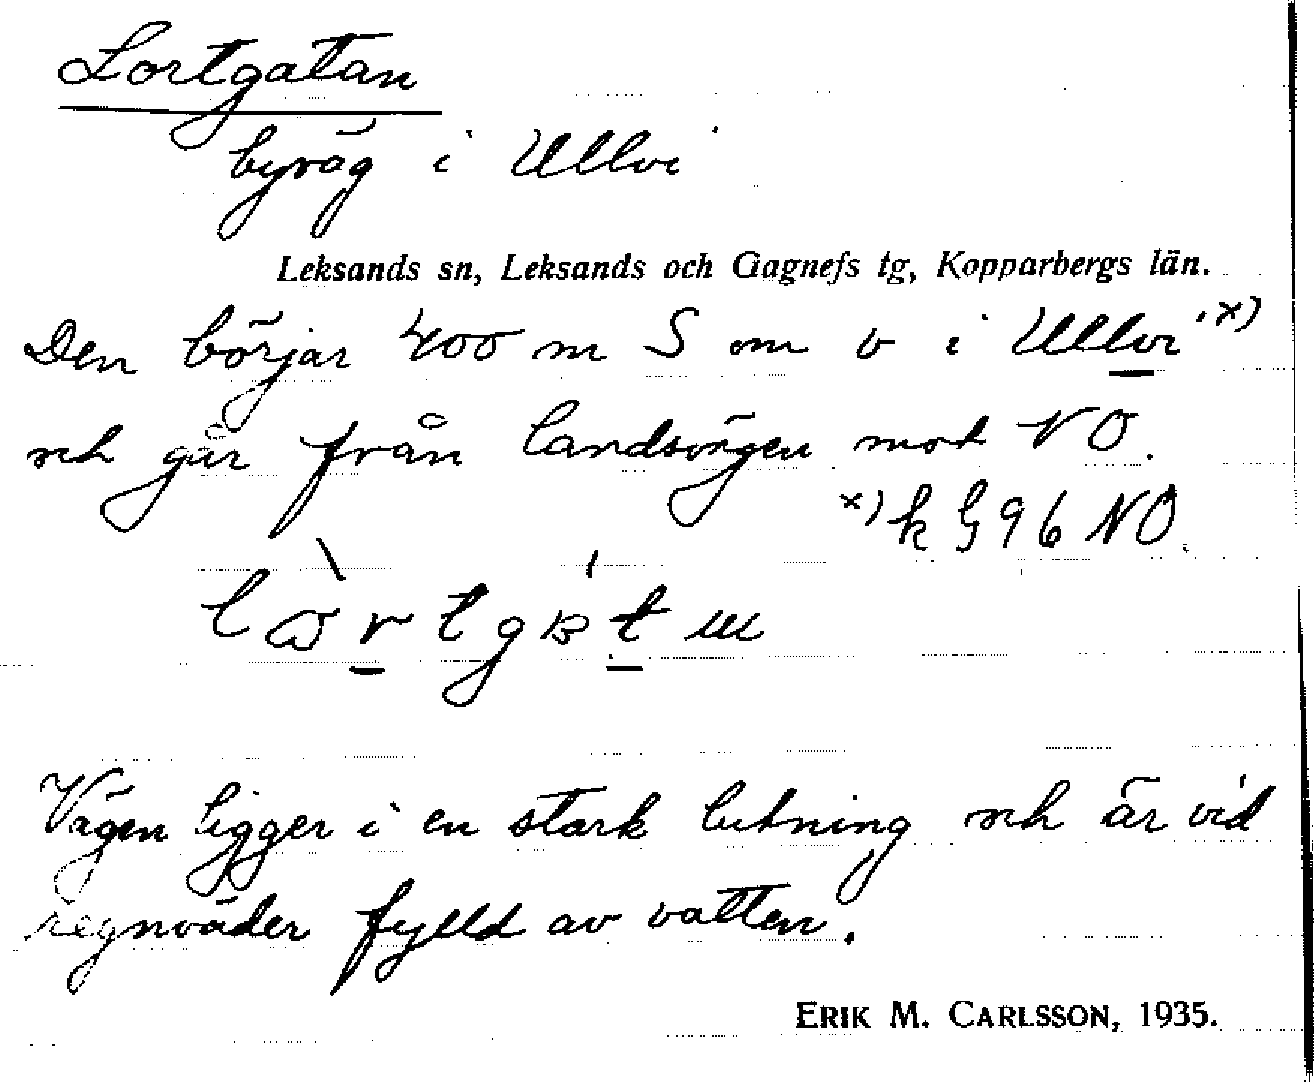 Lortgatan
byväg i Ullvi
Leksands sn, Leksands och Gagnefs tg, Kopparbergs län.
Den börjar 400 m S om v i Ullvi x)
och går från landsvägen mot NO.
x) k G 96 NO.
Vägen ligger i en stark lutning och är vid
regnväder fylld av vatten.
ERIK M. CARLSSON, 1935.